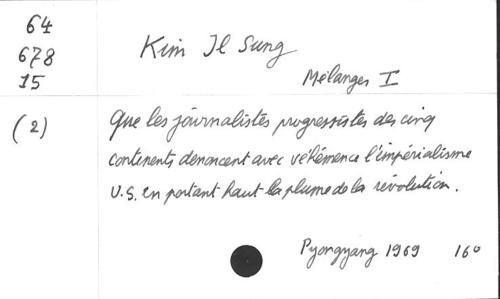 64
678
15
(2)
Kim Il Sung
Mélanges I
Que les journalistes progressistes des cinq
continents dénoncent avec véhémence l'impérialisme
U.S. en portant haut la plume de la révolution.
Pyongyang 1969 16°